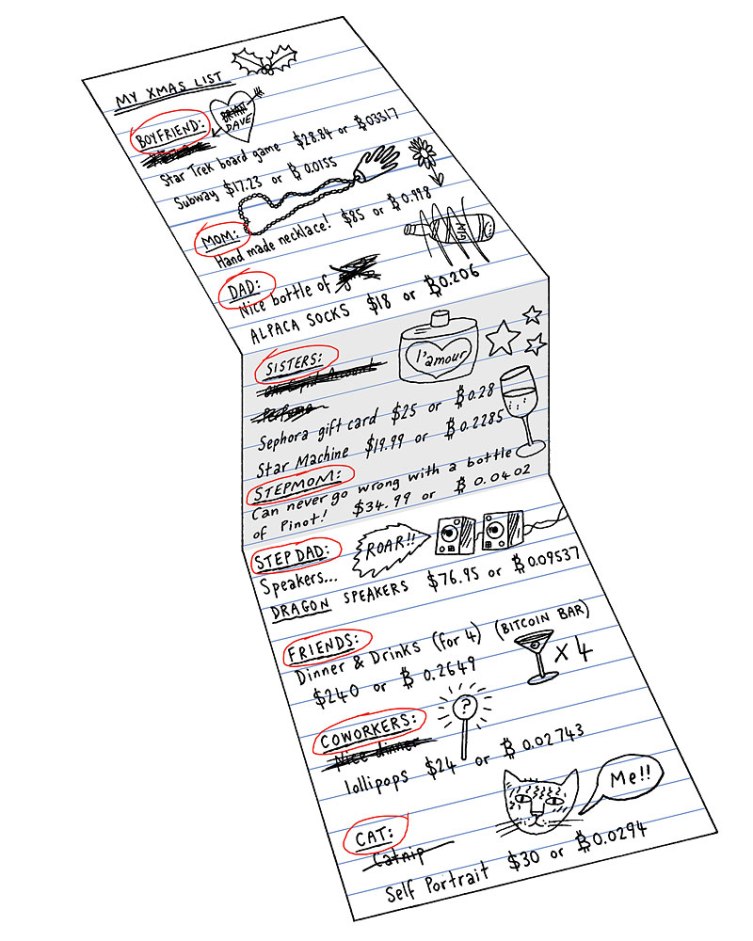 MY XMAS LIST
BOYFRIEND:
BRIAN
DAVE
Star Trek board game $28.84 or ₿03317
Subway $17.23 or ₿0.0155
MOM:
Hand made necklace! $85 or ₿0.998
DAD:
Nice bottle of
ALPACA SOCKS $18 or ₿0.206
SISTERS:
l'amour
Perfume
Sephora gift card $25 or ₿0.28
Star Machine $19.99 or ₿0.2285
STEPMOM:
Can never go wrong with a bottle
of Pinot! $34.99 or ₿0.0402
STEP DAD:
ROAR!!
Speakers...
DRAGON SPEAKERS $76.95 or ₿0.09537
FRIENDS:
Dinner & Drinks (for 4) (BITCOIN BAR)
$240 or ₿0.2649
X 4
COWORKERS:
?
Nice dinner
lollipops $24 or ₿0.02743
CAT:
Me!!
Catnip
Self Portrait $30 or ₿0.0294